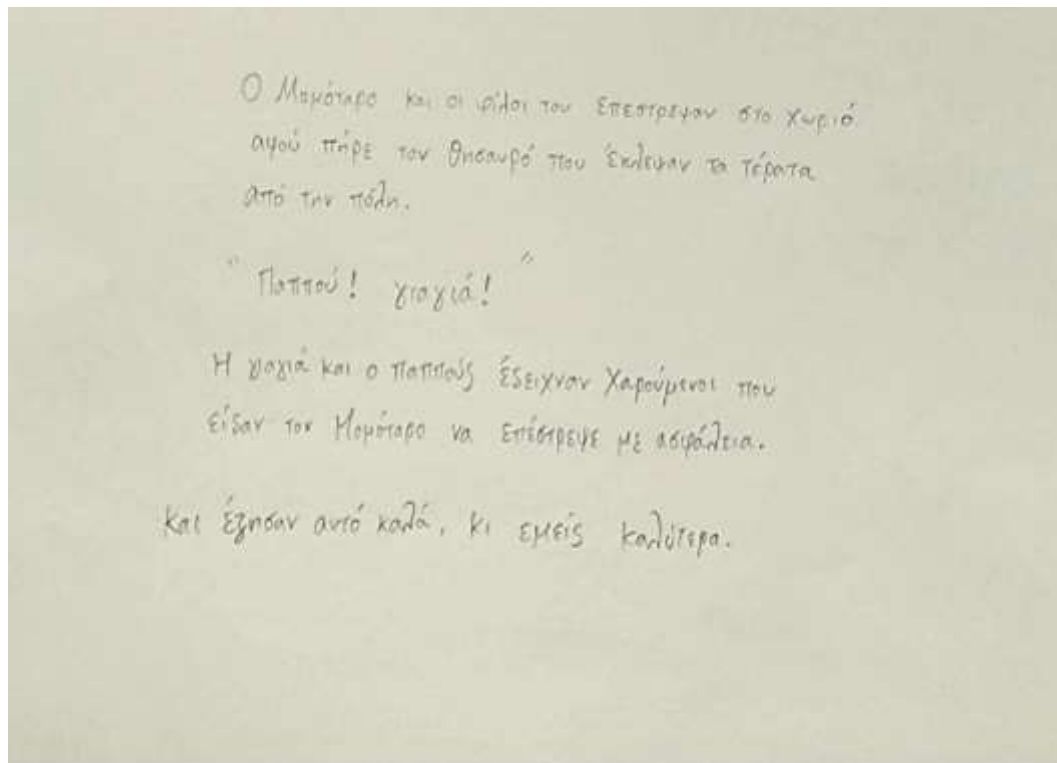 Ο Μομόταρο και οι φίλοι του επεστρεψαν στο χωριό
αφού πήρε τον θησαυρό που έκλεψαν τα τέρατα
από την πόλη.
" Παππού! γιαγιά! "
Η γιαγιά και ο παππούς έδειχναν χαρούμενοι που
είδαν τον Μομόταρο να επέστρεψε με ασφάλεια.
και έζησαν αυτό καλά, κι εμείς καλύτερα.